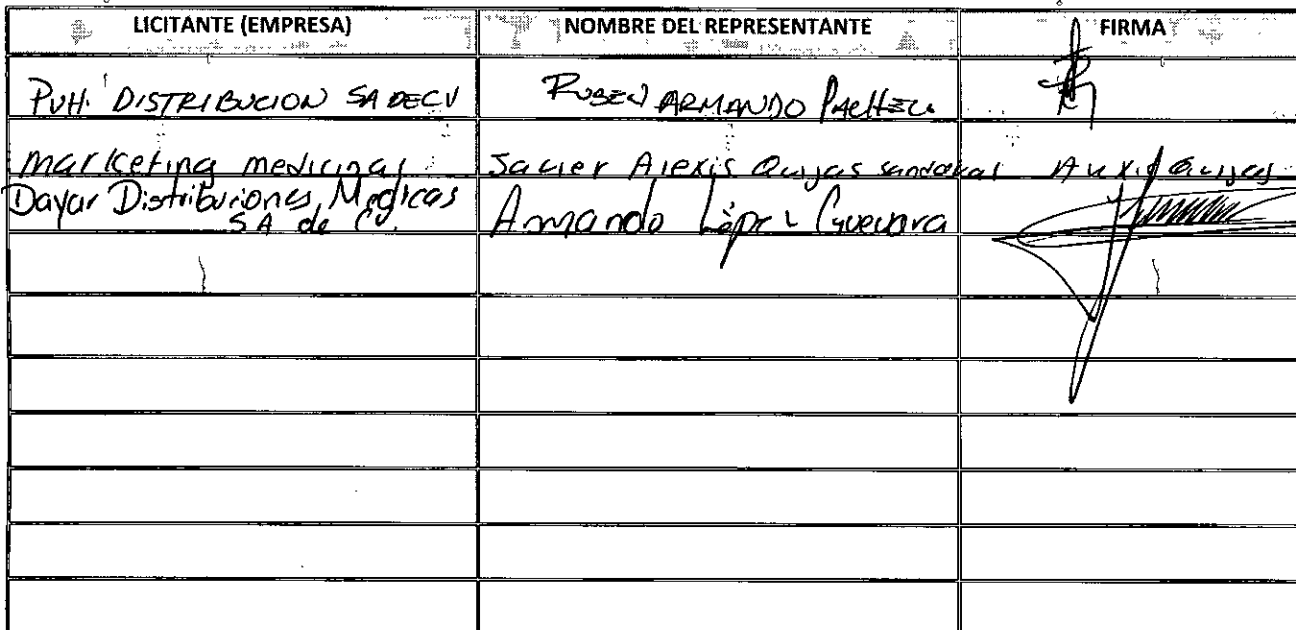 LICITANTE (EMPRESA) NOMBRE DEL REPRESENTANTE FIRMA
PVH. DISTRIBUCION SA DECV RUBEN ARMANDO PACHECO
Marketing medicinal Javier Alexis Quijas Sandoval Quijas
Dayar Distribuciones Medicas Armando López Guevara
SA de CV.